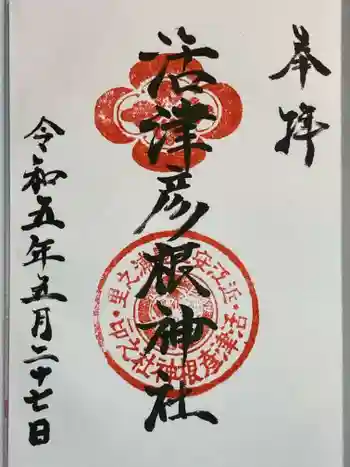 奉拝
活津彦根神社
令和五年五月二十七日
活津彦根神社之印